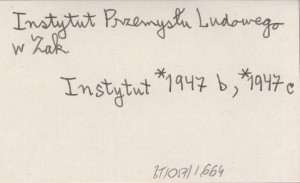 Instytut Przemysłu Ludowego
w Żak.
Instytut *1947 b, *1947 c
BT/057/1664